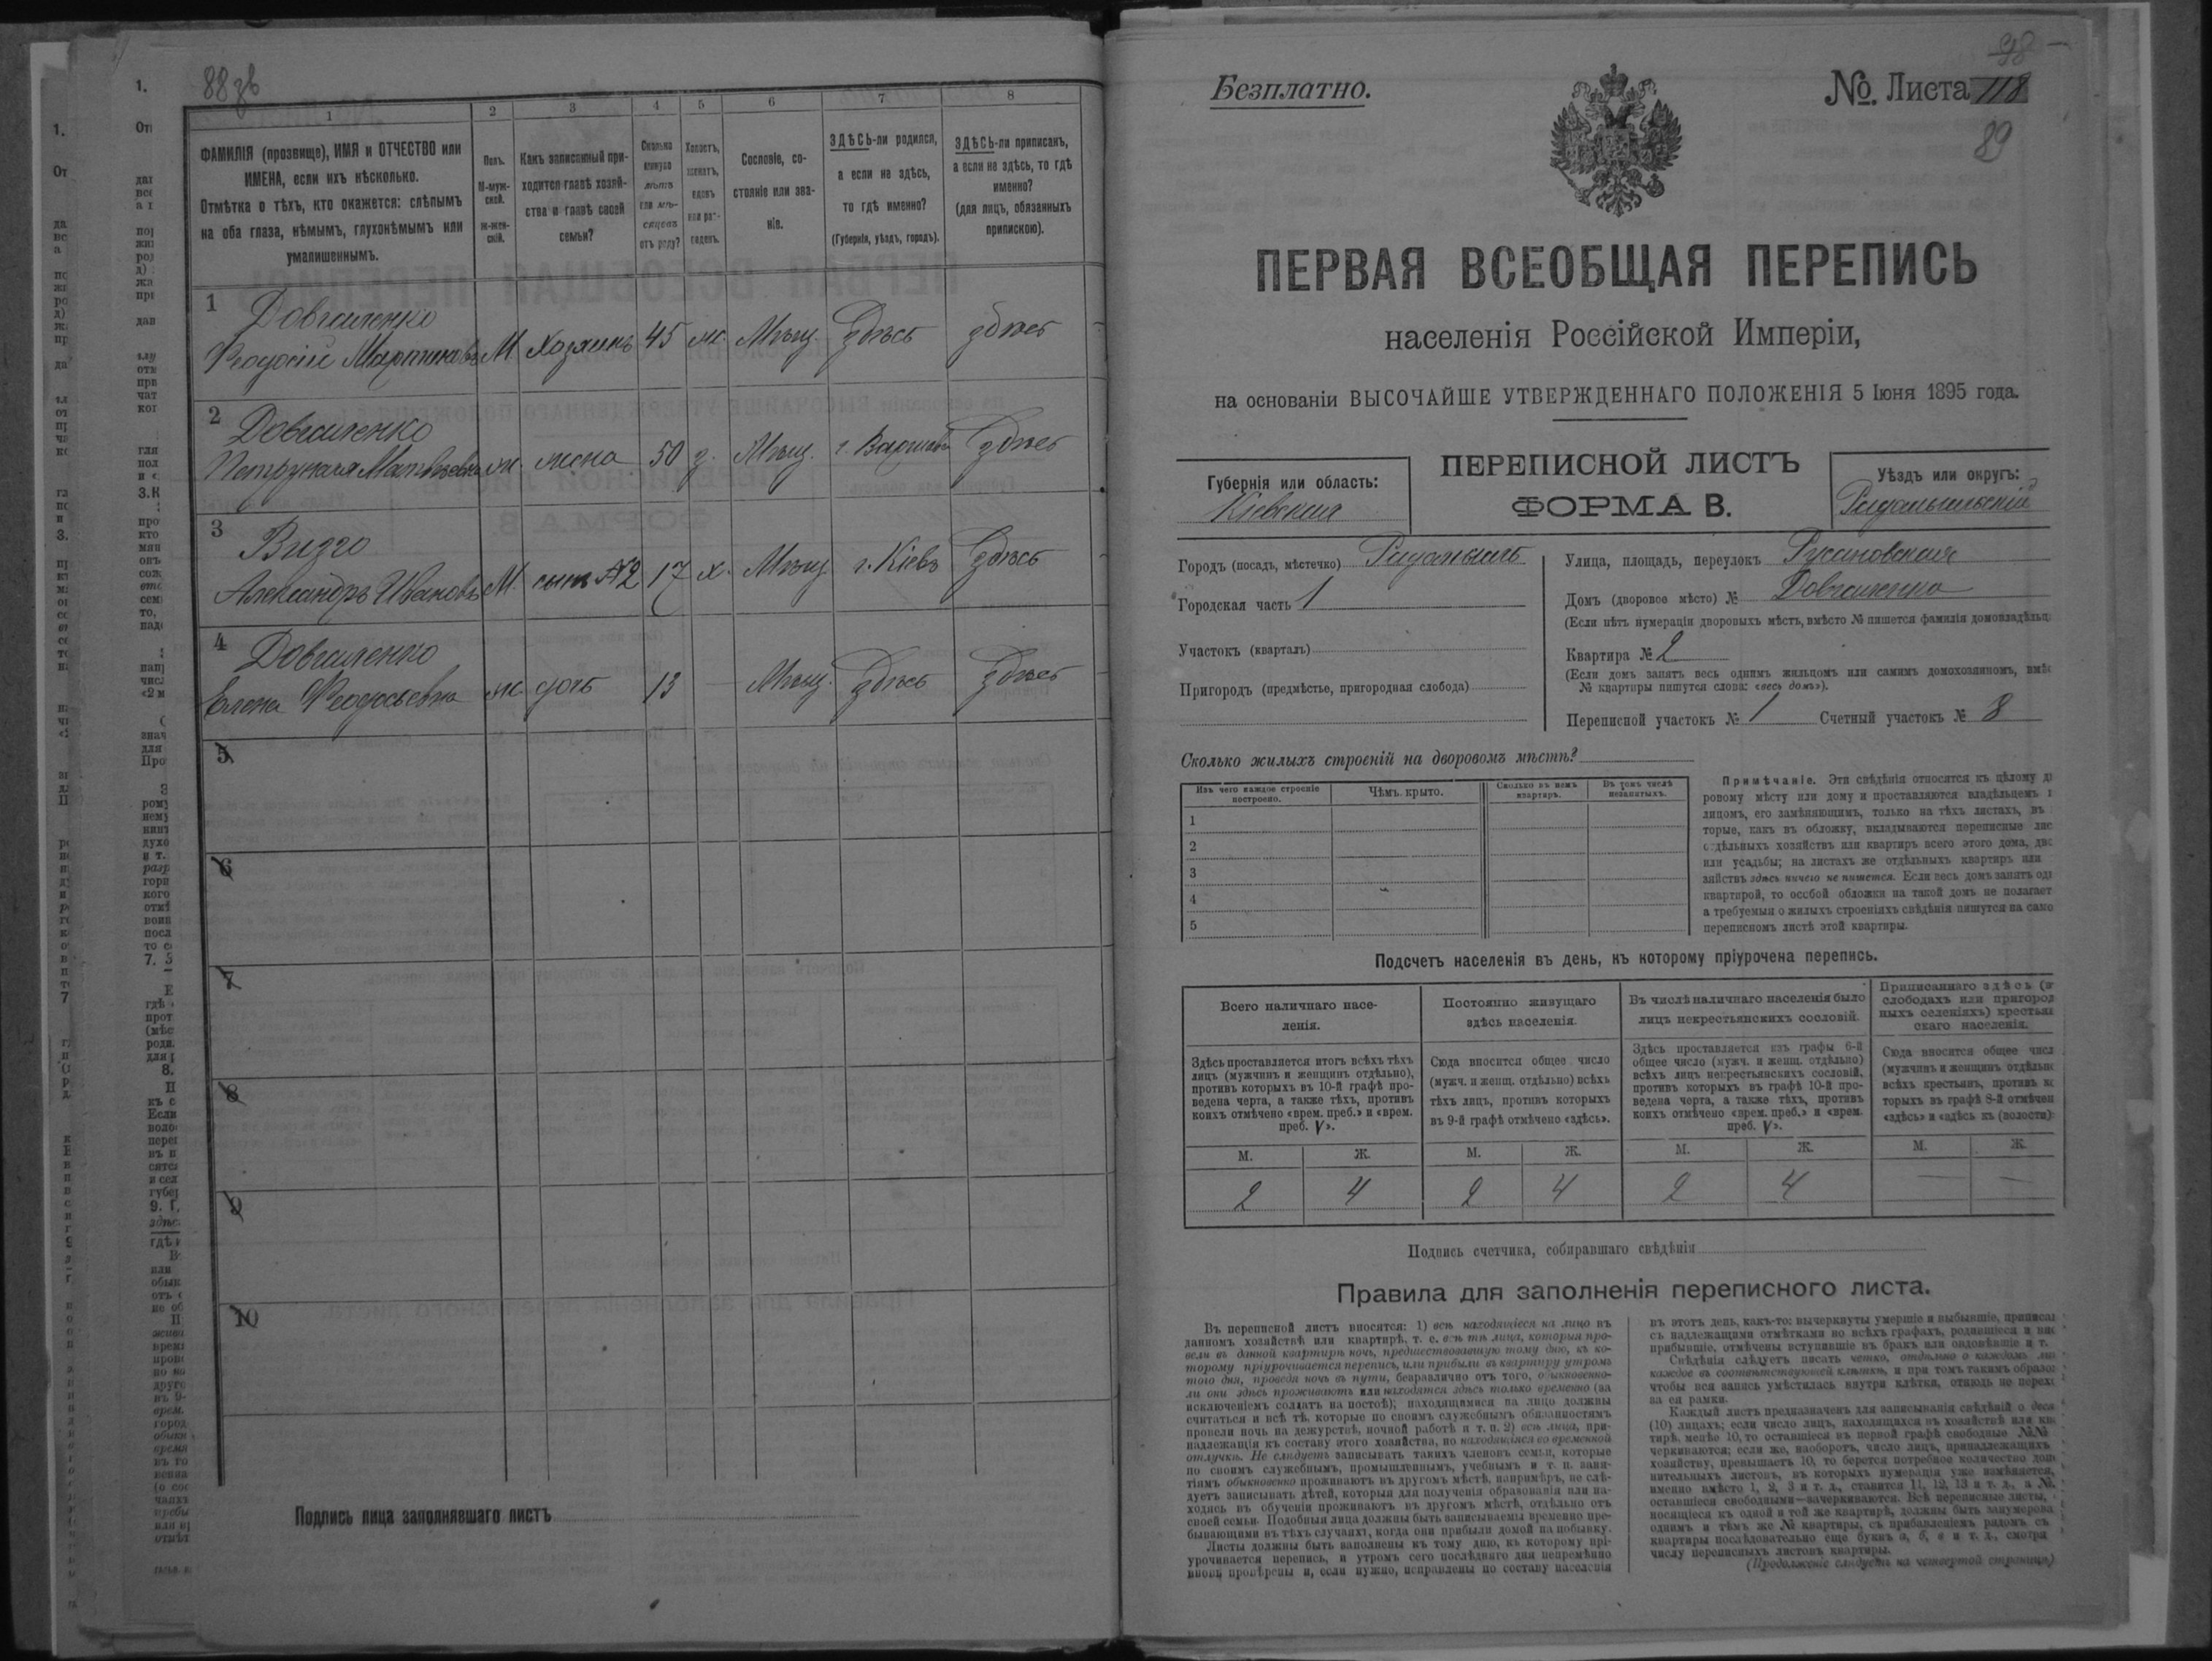 88 зв
1 2 3 4 5 6 7 8
ФАМИЛІЯ (прозвище), ИМЯ и ОТЧЕСТВО или
ИМЕНА, если ихъ нѣсколько.
Отмѣтка о тѣхъ, кто окажется: слѣпымъ
на оба глаза, нѣмымъ, глухонѣмымъ или
умалишеннымъ.
Полъ.
М-муж-
ской.
Ж-жен-
скій.
Какъ записанный при-
ходится главѣ хозяй-
ства и главѣ своей
семьи?
Сколько
минуло
лѣтъ
или мѣ-
сяцевъ
отъ роду?
Холостъ,
женатъ,
вдовъ
или раз-
веденъ.
Сословіе, со-
стояніе или зва-
ніе.
ЗДѢСЬ-ли родился,
а если не здѣсь,
то гдѣ именно?
(Губернія, уѣздъ, городъ).
ЗДѢСЬ-ли приписанъ,
а если не здѣсь, то гдѣ
именно?
(для лицъ, обязанныхъ
припискою).
1 Довгаленко
Феодосій Мартиновъ М Хозяинъ 45 ж. Мѣщ. Здѣсь здѣсь
2 Довгаленко
Матвѣевна ж. жена 50 з. Мѣщ. здѣсь
3
Александръ Ивановъ М. сынъ №2 17 х. Мѣщ. г. Кіевъ здѣсь
4 Довгаленко
Елена Феодосьевна ж. дочь 13 — Мѣщ. Здѣсь здѣсь
5
6
7
8
9
10
Подпись лица заполнявшаго листъ
98
Безплатно.
№. Листа 118
89
ПЕРВАЯ ВСЕОБЩАЯ ПЕРЕПИСЬ
населенія Россійской Имперіи,
на основаніи ВЫСОЧАЙШЕ УТВЕРЖДЕННАГО ПОЛОЖЕНІЯ 5 Іюня 1895 года.
ПЕРЕПИСНОЙ ЛИСТЪ
ФОРМА В.
Губернія или область:
Кіевская
Уѣздъ или округъ:
Радомысльскій
Городъ (посадъ, мѣстечко) Радомысль
Городская часть 1
Участокъ (кварталъ)
Пригородъ (предмѣстье, пригородная слобода)
Улица, площадь, переулокъ Русановская
Домъ (дворовое мѣсто) № Довгаленко
(Если нѣтъ нумераціи дворовыхъ мѣстъ, вмѣсто № пишется фамилія домовладѣльц
Квартира № 2
(Если домъ занятъ весь однимъ жильцомъ или самимъ домохозяиномъ, вмѣс
№ квартиры пишутся слова: «весь домъ»).
Переписной участокъ № 1 Счетный участокъ № 8
Сколько жилыхъ строеній на дворовомъ мѣстѣ?
Изъ чего каждое строеніе
построено.
Чѣмъ крыто.
Сколько въ немъ
квартиръ.
Въ томъ числѣ
незанятыхъ.
1
2
3
4
5
Примѣчаніе. Эти свѣдѣнія относятся къ цѣлому д
ровому мѣсту или дому и проставляются владѣльцемъ
лицомъ, его замѣняющимъ, только на тѣхъ листахъ, въ
торые, какъ въ обложку, вкладываются переписные лис
отдѣльныхъ хозяйствъ или квартиръ всего этого дома, дво
или усадьбы; на листахъ же отдѣльныхъ квартиръ или
зяйствъ здѣсь ничего не пишется. Если весь домъ занятъ од
квартирой, то особой обложки на такой домъ не полагает
а требуемыя о жилыхъ строеніяхъ свѣдѣнія пишутся на само
переписномъ листѣ этой квартиры.
Подсчетъ населенія въ день, къ которому пріурочена перепись.
Всего наличнаго насе-
ленія.
Постоянно живущаго
здѣсь населенія.
Въ числѣ наличнаго населенія было
лицъ некрестьянскихъ сословій.
Приписаннаго здѣсь (в
слободахъ или пригород
ныхъ селеніяхъ) крестьян
скаго населенія.
Здѣсь проставляется итогъ всѣхъ тѣхъ
лицъ (мужчинъ и женщинъ отдѣльно),
противъ которыхъ въ 10-й графѣ про-
ведена черта, а также тѣхъ, противъ
коихъ отмѣчено «врем. преб.» и «врем.
преб. V».
Сюда вносится общее число
(мужч. и женщ. отдѣльно) всѣхъ
тѣхъ лицъ, противъ которыхъ
въ 9-й графѣ отмѣчено «здѣсь».
Здѣсь проставляется изъ графы 6-й
общее число (мужч. и женщ. отдѣльно)
всѣхъ лицъ некрестьянскихъ сословій,
противъ которыхъ въ графѣ 10-й про-
ведена черта, а также тѣхъ, противъ
коихъ отмѣчено «врем. преб.» и «врем.
преб. V».
Сюда вносится общее числ
(мужчинъ и женщинъ отдѣльно
всѣхъ крестьянъ, противъ ко
торыхъ въ графѣ 8-й отмѣчен
«здѣсь» и «здѣсь къ (волости)
М. Ж. М. Ж. М. Ж. М. Ж.
2 4 2 4 2 4 — —
Подпись счетчика, собиравшаго свѣдѣнія
Правила для заполненія переписного листа.
Въ переписной листъ вносятся: 1) всѣ находящіеся на лицо въ
данномъ хозяйствѣ или квартирѣ, т. е. всѣ тѣ лица, которыя про-
вели въ данной квартирѣ ночь, предшествовавшую тому дню, къ ко-
торому пріурочивается перепись, или прибыли въ квартиру утромъ
того дня, проведя ночь въ пути, безразлично отъ того, обыкновенно-
ли они здѣсь проживаютъ или находятся здѣсь только временно (за
исключеніемъ солдатъ на постоѣ); находящимися на лицо должны
считаться и всѣ тѣ, которые по своимъ служебнымъ обязанностямъ
провели ночь на дежурствѣ, ночной работѣ и т. п. 2) всѣ лица, при-
надлежащія къ составу этого хозяйства, но находящіяся во временной
отлучкѣ. Не слѣдуетъ записывать такихъ членовъ семьи, которые
по своимъ служебнымъ, промышленнымъ, учебнымъ и т. п. заня-
тіямъ обыкновенно проживаютъ въ другомъ мѣстѣ, напримѣръ, не слѣ-
дуетъ записывать дѣтей, которыя для полученія образованія или на-
ходясь въ обученіи проживаютъ въ другомъ мѣстѣ, отдѣльно отъ
своей семьи. Подобныя лица должны быть записываемы временно пре-
бывающими въ тѣхъ случаяхъ, когда они прибыли домой на побывку.
Листы должны быть заполнены къ тому дню, къ которому прі-
урочивается перепись, и утромъ сего послѣдняго дня непремѣнно
вновь провѣрены и, если нужно, исправлены по составу населенія
въ этотъ день, какъ-то: вычеркнуты умершіе и выбывшіе, приписа
съ надлежащими отмѣтками во всѣхъ графахъ, родившіеся и вно
прибывшіе, отмѣчены вступившіе въ бракъ или овдовѣвшіе и т.
Свѣдѣнія слѣдуетъ писать четко, отдѣльно о каждомъ ли
каждое въ соотвѣтствующей клѣткѣ, и при томъ такимъ образо
чтобы вся запись умѣстилась внутри клѣтки, отнюдь не перехо
за ея рамки.
Каждый листъ предназначенъ для записыванія свѣдѣній о деся
(10) лицахъ; если число лицъ, находящихся въ хозяйствѣ или ква
тирѣ, менѣе 10, то оставшіеся въ первой графѣ свободные №№
черкиваются; если же, наоборотъ, число лицъ, принадлежащихъ
хозяйству, превышаетъ 10, то берется потребное количество допо
нительныхъ листовъ, въ которыхъ нумерація уже измѣняется,
именно вмѣсто 1, 2, 3 и т. д., ставится 11, 12, 13 и т. д., а №
оставшіеся свободными—зачеркиваются. Всѣ переписные листы,
носящіеся къ одной и той же квартирѣ, должны быть занумерова
однимъ и тѣмъ же № квартиры, съ прибавленіемъ рядомъ съ
квартиры послѣдовательно еще буквъ а, б, в и т. д., смотря
числу переписныхъ листовъ квартиры.
(Продолженіе слѣдуетъ на четвертой страницѣ)